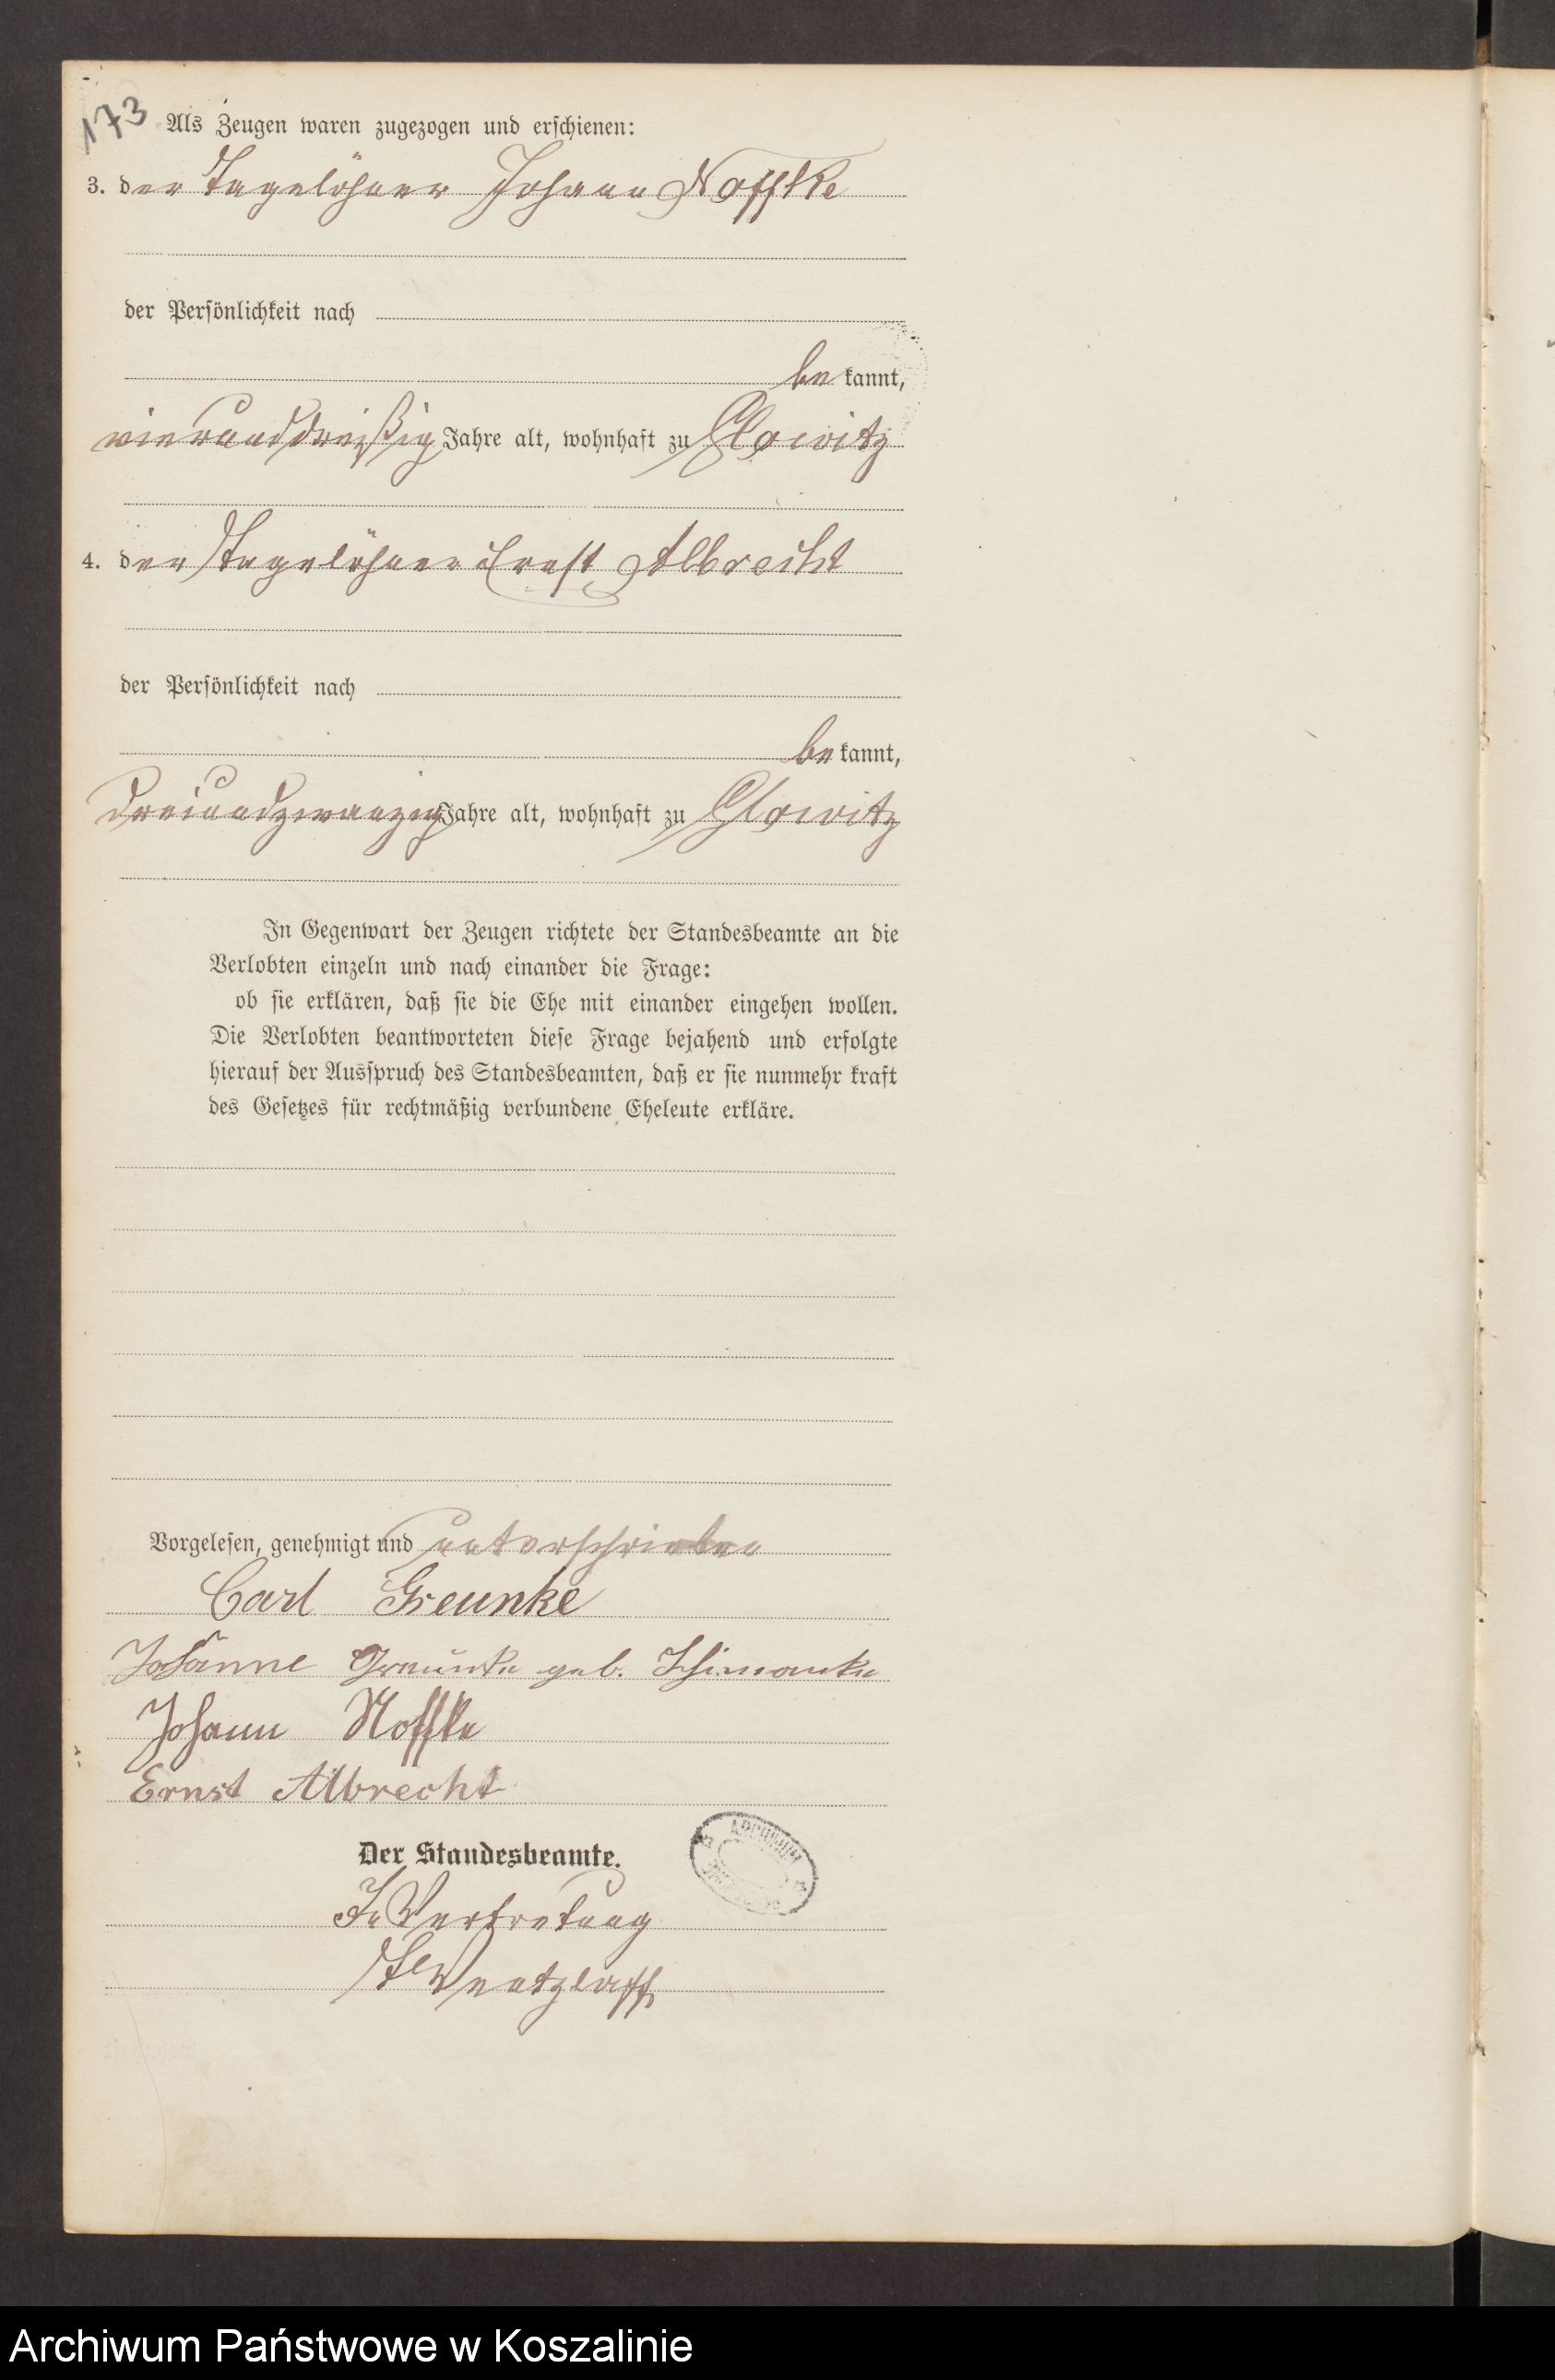 173
Als Zeugen waren zugezogen und erschienen:
3. der Tagelöhner Johann Noffke
der Persönlichkeit nach
be kannt,
vierunddreißig Jahre alt, wohnhaft zu Glowitz
4. der Tagelöhner Ernst Albrecht
der Persönlichkeit nach
be kannt,
dreiundzwanzig Jahre alt, wohnhaft zu Glowitz
In Gegenwart der Zeugen richtete der Standesbeamte an die
Verlobten einzeln und nach einander die Frage:
ob sie erklären, daß sie die Ehe mit einander eingehen wollen.
Die Verlobten beantworteten diese Frage bejahend und erfolgte
hierauf der Ausspruch des Standesbeamten, daß er sie nunmehr kraft
des Gesetzes für rechtmäßig verbundene Eheleute erkläre.
Vorgelesen, genehmigt und unterschrieben
Carl Greunke
Johanne Greunke geb. Schimanke
Johann Noffke
Ernst Albrecht
Der Standesbeamte.
In Vertretung
Wentzlaff
ARCHIWUM
Archiwum Państwowe w Koszalinie